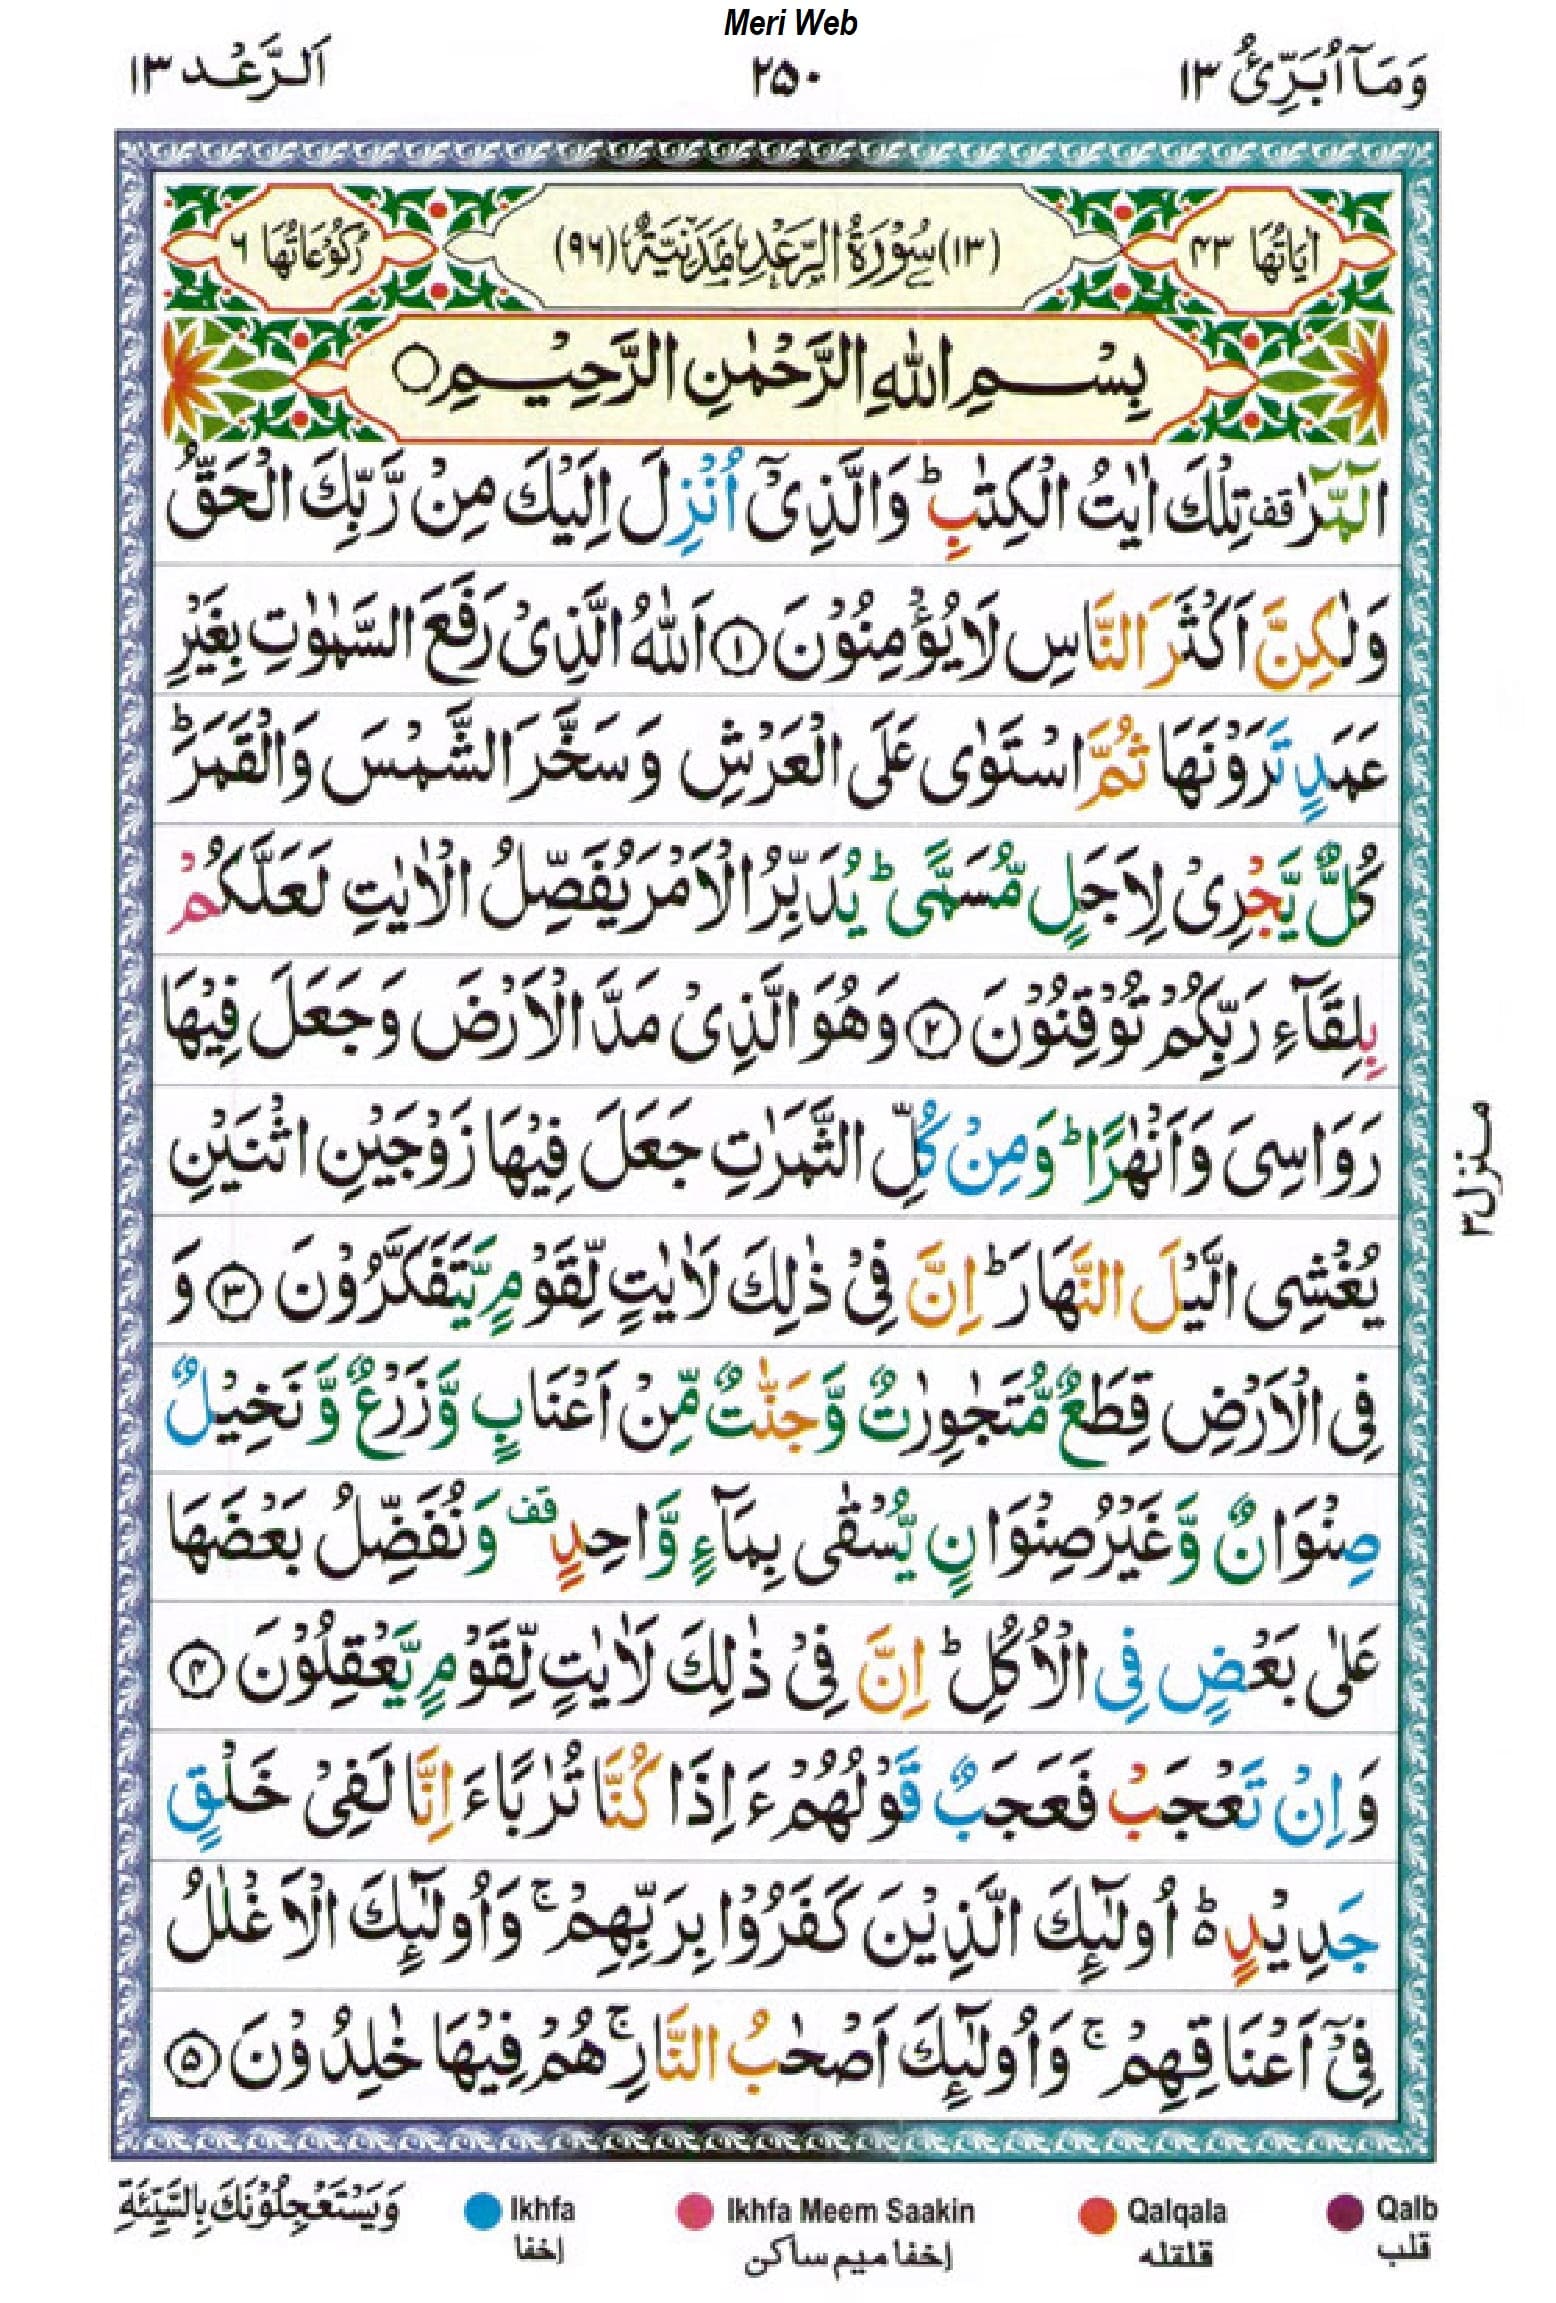 Meri Web
وَمَآ اُبَرِّئُ ١٣
٢٥٠
اَلرَّعْد ١٣
اٰيَاتُهَا ٤٣
(١٣) سُوْرَةُ الرَّعْدِ مَدَنِيَّةٌ (٩٦)
رُكُوْعَاتُهَا ٦
بِسْمِ اللّٰهِ الرَّحْمٰنِ الرَّحِيْمِ ○
الٓمّٓرٰ قف تِلْكَ اٰيٰتُ الْكِتٰبِ ؕ وَالَّذِىْۤ اُنْزِلَ اِلَيْكَ مِنْ رَّبِّكَ الْحَقُّ
وَلٰكِنَّ اَكْثَرَ النَّاسِ لَا يُؤْمِنُوْنَ ① اَللّٰهُ الَّذِىْ رَفَعَ السَّمٰوٰتِ بِغَيْرِ
عَمَدٍ تَرَوْنَهَا ثُمَّ اسْتَوٰى عَلَى الْعَرْشِ وَسَخَّرَ الشَّمْسَ وَالْقَمَرَ ؕ
كُلٌّ يَّجْرِىْ لِاَجَلٍ مُّسَمًّى ؕ يُدَبِّرُ الْاَمْرَ يُفَصِّلُ الْاٰيٰتِ لَعَلَّكُمْ
بِلِقَآءِ رَبِّكُمْ تُوْقِنُوْنَ ② وَهُوَ الَّذِىْ مَدَّ الْاَرْضَ وَجَعَلَ فِيْهَا
رَوَاسِىَ وَاَنْهٰرًا ؕ وَمِنْ كُلِّ الثَّمَرٰتِ جَعَلَ فِيْهَا زَوْجَيْنِ اثْنَيْنِ
يُغْشِى الَّيْلَ النَّهَارَ ؕ اِنَّ فِىْ ذٰلِكَ لَاٰيٰتٍ لِّقَوْمٍ يَّتَفَكَّرُوْنَ ③ وَ
فِى الْاَرْضِ قِطَعٌ مُّتَجٰوِرٰتٌ وَّجَنّٰتٌ مِّنْ اَعْنَابٍ وَّزَرْعٌ وَّنَخِيْلٌ
صِنْوَانٌ وَّغَيْرُ صِنْوَانٍ يُّسْقٰى بِمَآءٍ وَّاحِدٍ قف وَنُفَضِّلُ بَعْضَهَا
عَلٰى بَعْضٍ فِى الْاُكُلِ ؕ اِنَّ فِىْ ذٰلِكَ لَاٰيٰتٍ لِّقَوْمٍ يَّعْقِلُوْنَ ④
وَاِنْ تَعْجَبْ فَعَجَبٌ قَوْلُهُمْ ءَاِذَا كُنَّا تُرٰبًا ءَاِنَّا لَفِىْ خَلْقٍ
جَدِيْدٍ ؕ۵ اُولٰٓئِكَ الَّذِيْنَ كَفَرُوْا بِرَبِّهِمْ ۚ وَاُولٰٓئِكَ الْاَغْلٰلُ
فِىْۤ اَعْنَاقِهِمْ ۚ وَاُولٰٓئِكَ اَصْحٰبُ النَّارِ ۚ هُمْ فِيْهَا خٰلِدُوْنَ ⑤
منزل ٣
وَيَسْتَعْجِلُوْنَكَ بِالسَّيِّئَةِ
Ikhfa
إخفا
Ikhfa Meem Saakin
إخفا ميم ساكن
Qalqala
قلقله
Qalb
قلب